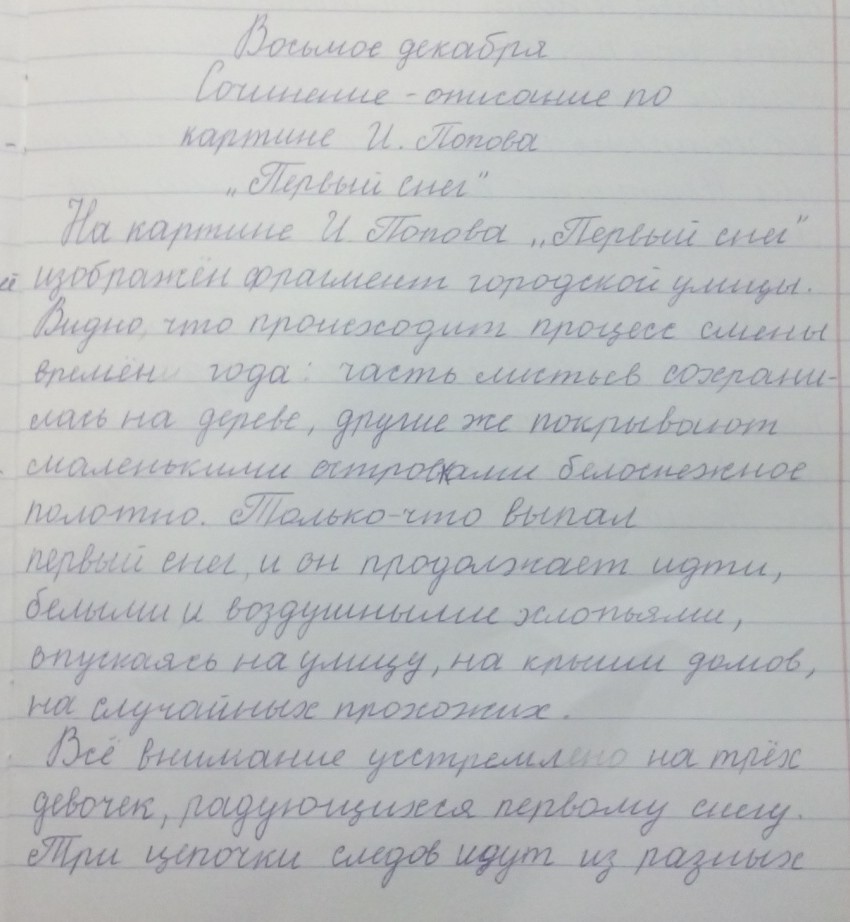 Восьмое декабря
Сочинение - описание по
картине И. Попова
„Первый снег“
На картине И. Попова „Первый снег“
изображён фрагмент городской улицы.
Видно, что происходит процесс смены
времён года: часть листьев сохрани-
лась на дереве, другие же покрывают
маленькими островками белоснежное
полотно. Только-что выпал
первый снег, и он продолжает идти,
белыми и воздушными хлопьями,
опускаясь на улицу, на крыши домов,
на случайных прохожих.
Всё внимание устремлено на трёх
девочек, радующихся первому снегу.
Три цепочки следов идут из разных